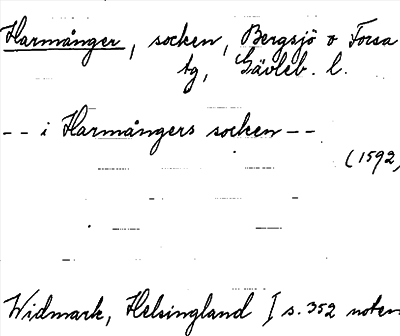 Harmånger, socken, Bergsjö o Forsa
tg, Gävleb. l.
-- i Harmångers socken --
(1592)
Widmark, Helsingland I s. 352 noten